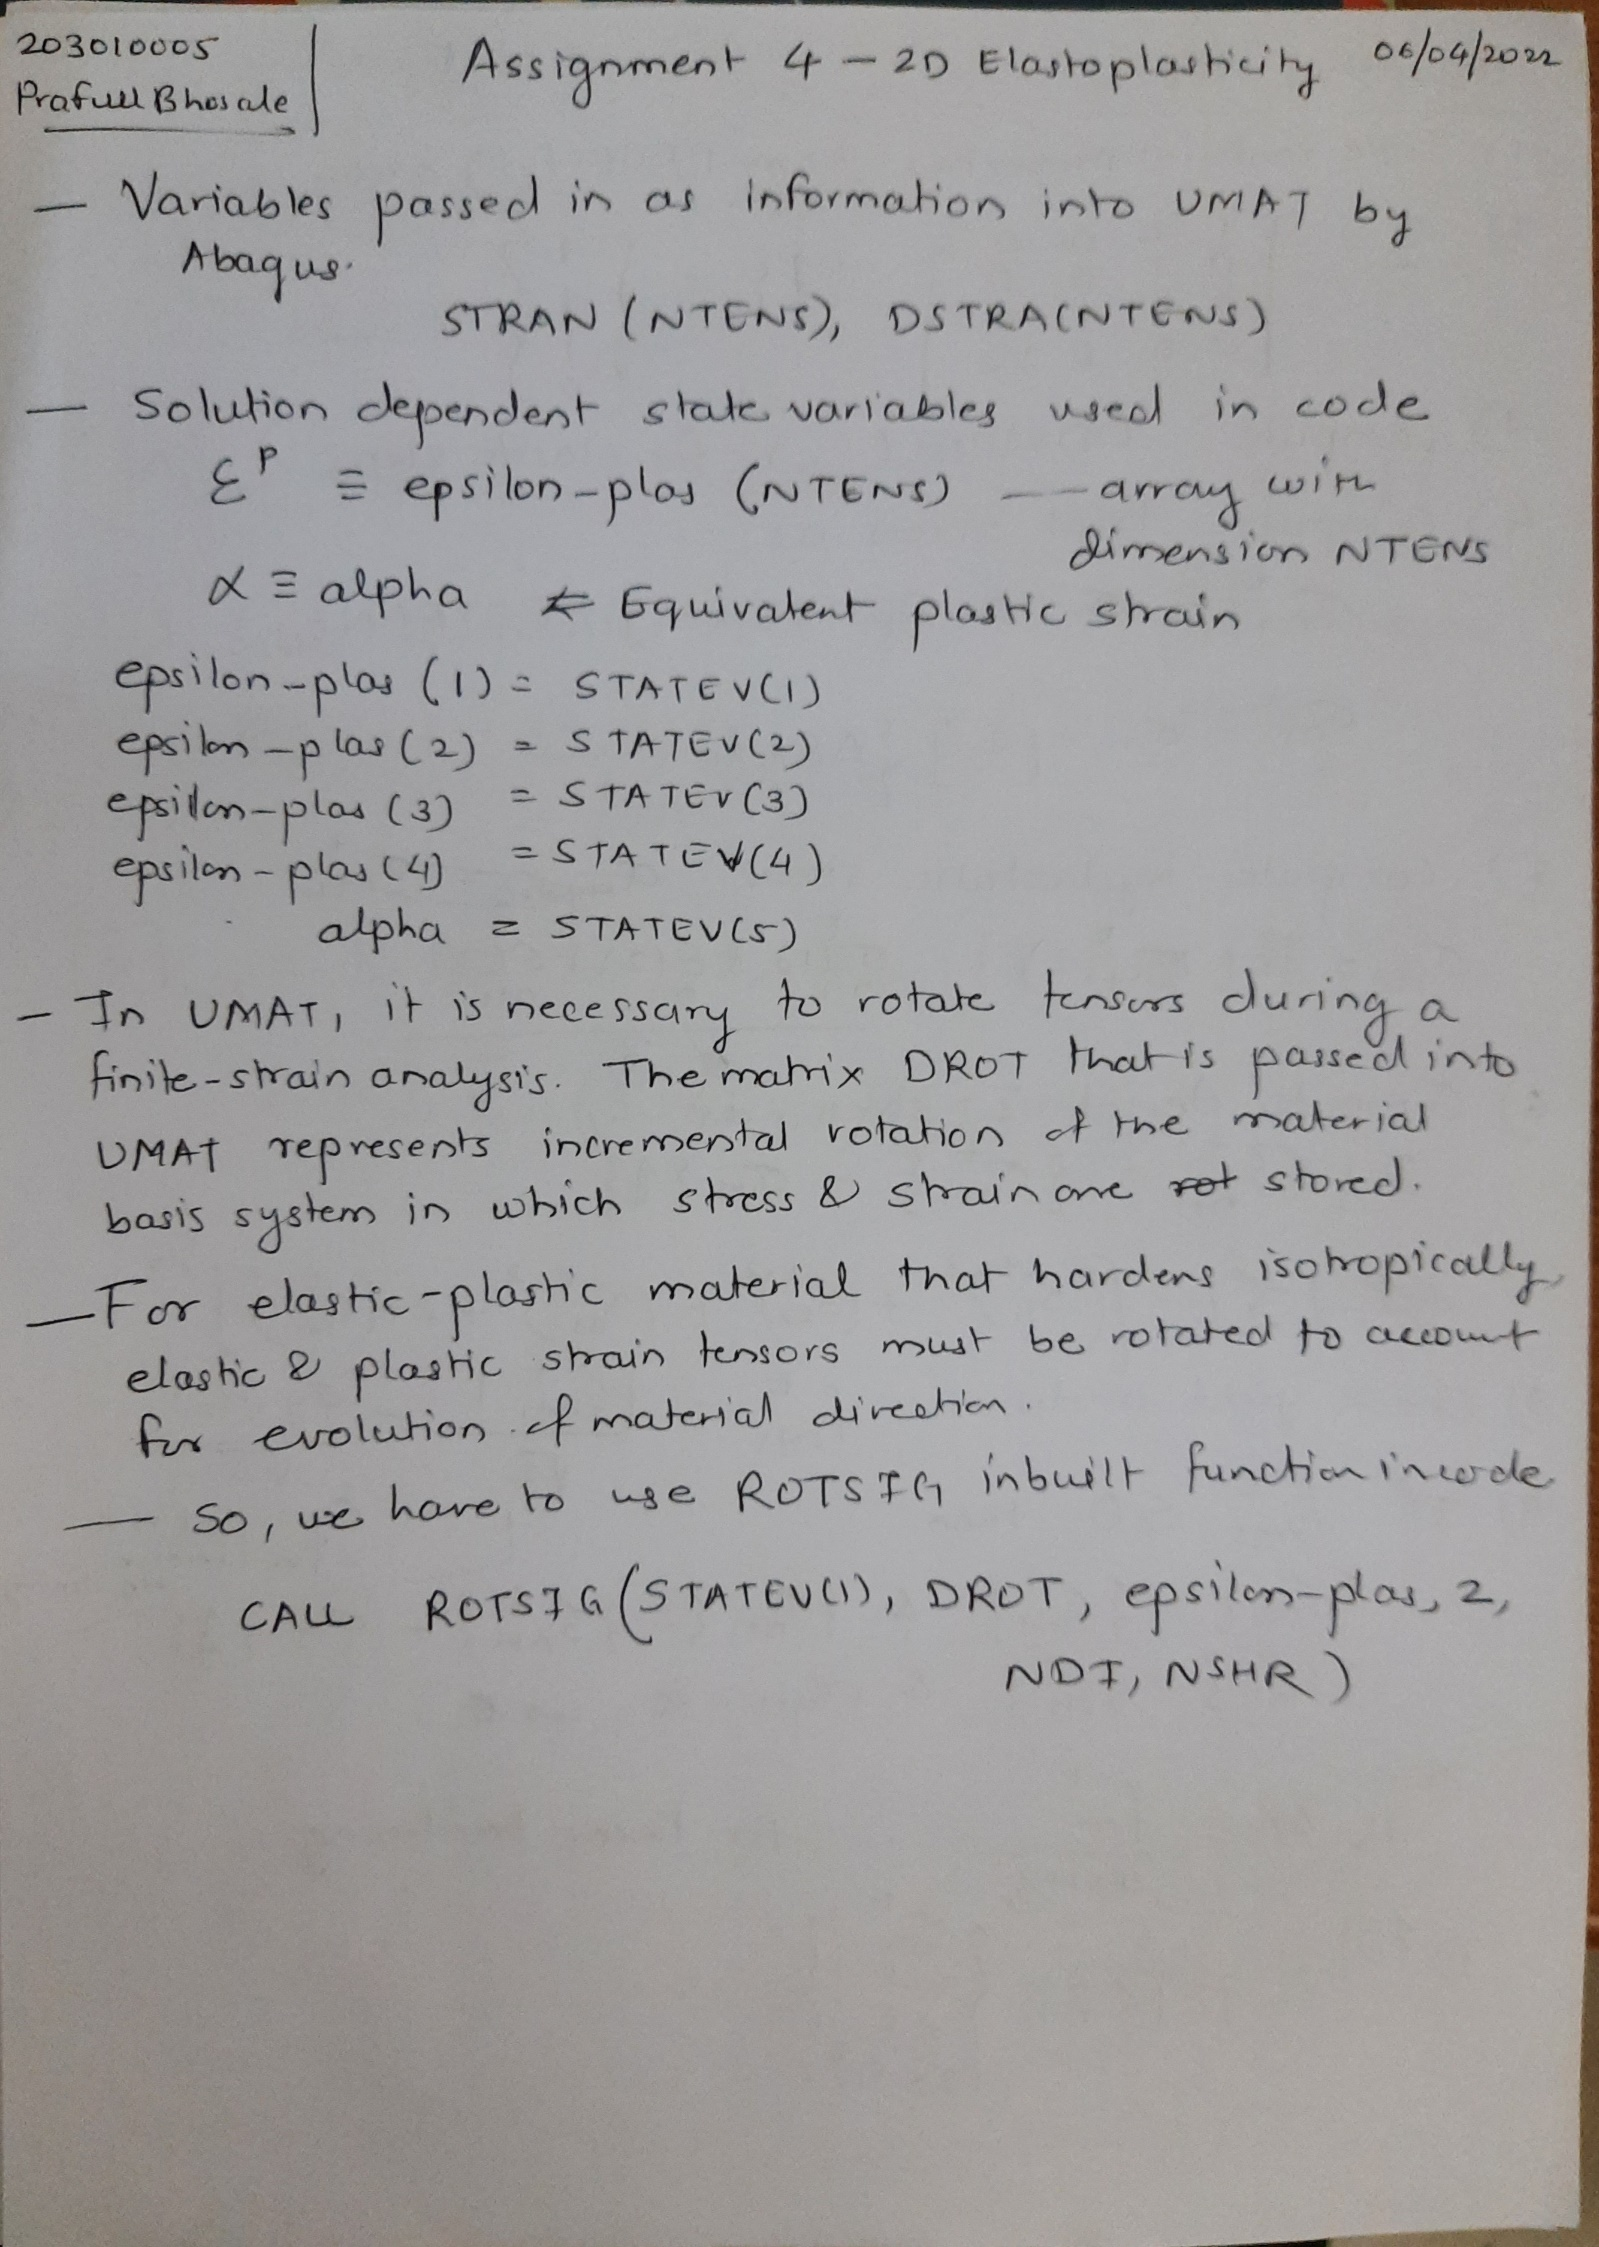 203010005
Prafull Bhosale
Assignment 4 – 2D Elastoplasticity
06/04/2022
— Variables passed in as information into UMAT by
Abaqus.
STRAN (NTENS), DSTRA(NTENS)
— Solution dependent state variables used in code
Ɛᵖ ≡ epsilon-plas (NTENS) — array with
dimension NTENS
α ≡ alpha ⇐ Equivalent plastic strain
epsilon-plas (1) = STATEV(1)
epsilon-plas (2) = STATEV(2)
epsilon-plas (3) = STATEV(3)
epsilon-plas (4) = STATEV(4)
alpha = STATEV(5)
– In UMAT, it is necessary to rotate tensors during a
finite-strain analysis. The matrix DROT that is passed into
UMAT represents incremental rotation of the material
basis system in which stress & strain are stored.
— For elastic-plastic material that hardens isotropically,
elastic & plastic strain tensors must be rotated to account
for evolution of material direction.
— So, we have to use ROTSIG inbuilt function in code
CALL ROTSIG (STATEV(1), DROT, epsilon-plas, 2,
NDI, NSHR)